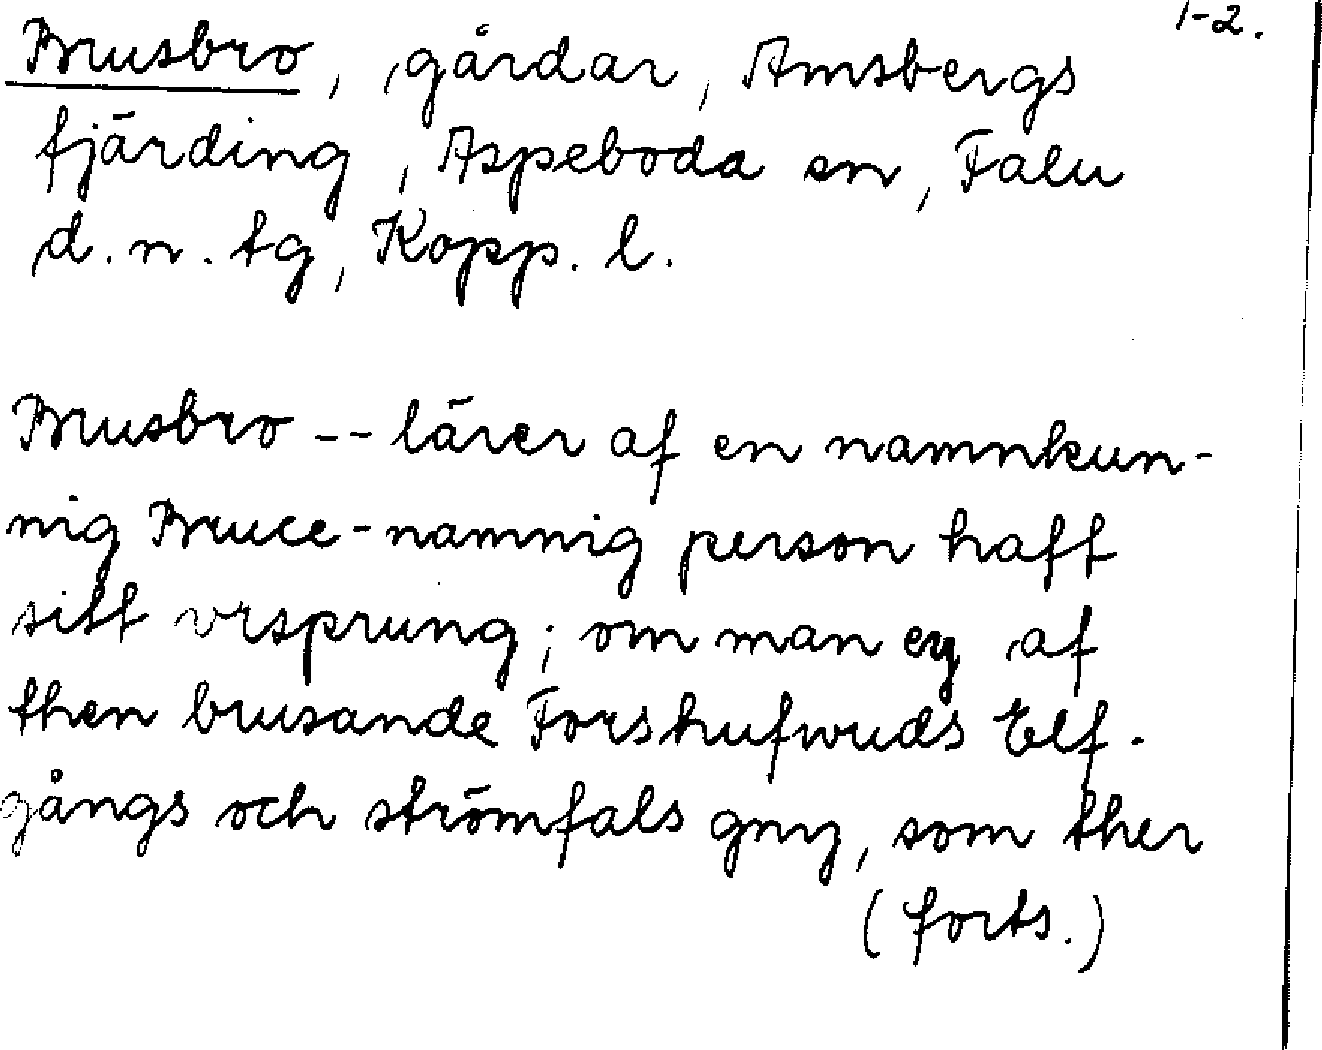 1-2.
Brusbro, gårdar, Amsbergs
fjärding, Aspeboda sn, Falu
d. n. tg, Kopp. l.
Brusbro -- lärer af en namnkun-
nig Bruce-namnig person haft
sitt vrsprung; om man ey af
then brusande Forshufwuds Elf-
gångs och strömfals gny, som ther
(forts.)